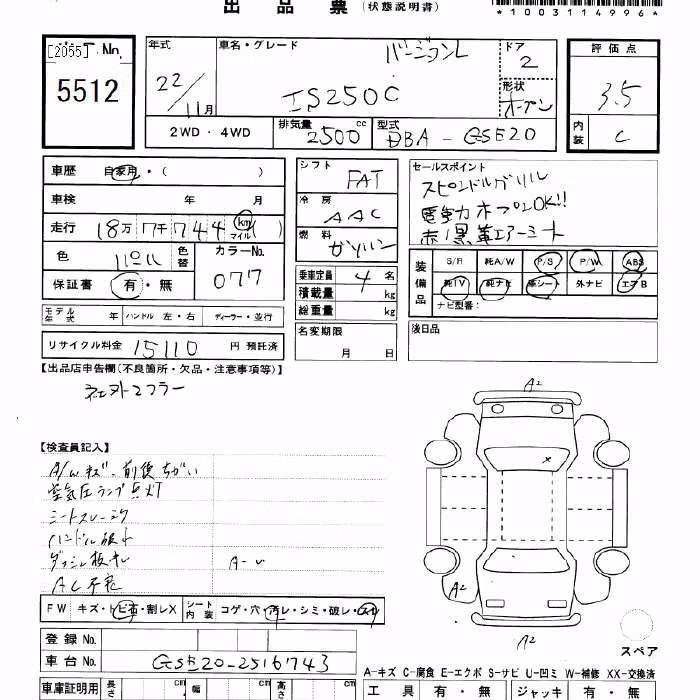 出品票 (状態説明書)
*1003114996*
[2055] No.
5512
年式 22/11月
車名・グレード バージョンL
IS250C
ドア 2
形状 オープン
評価点 3.5
内装 C
2WD・4WD
排気量 2500 cc
型式 DBA-GSE20
車歴 自家用・( )
車検 年 月
走行 18万7千744 (km マイル)
色 パール 色替
カラーNo. 077
保証書 有・無
シフト FAT
冷房 AAC
燃料 ガソリン
乗車定員 4 名
積載量 kg
総重量 kg
セールスポイント
スピンドルグリル
電動オープンOK!!
赤/黒革エアーシート
装備品 S/R 純A/W P/S P/W ABS
純TV 純ナビ 革シート 外ナビ エアB
ナビ型番:
モデル年式 年 ハンドル 左・右 ディーラー・並行
名変期限 月 日
後日品
リサイクル料金 15110 円 預託済
【出品店申告欄(不良箇所・欠品・注意事項等)】
社外マフラー
【検査員記入】
A/Wキズ 前後ちがい
空気圧ランプ点灯
シートスレ
ハンドル
ダッシュ板キレ
AC不
A-U
A2
A2
A2
FW キズ・トビ石・割レX シート内装 コゲ・穴・汚レ・シミ・破レ・スレ
登録No.
車台No. GSE20-2516743
車庫証明用 長さ cm 幅 cm 高さ cm
スペア
A-キズ C-腐食 E-エクボ S-サビ U-凹ミ W-補修 XX-交換済
工具 有・無 ジャッキ 有・無